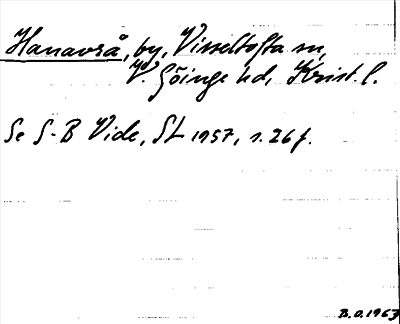 Hanavrå, by, Visseltofta sn,
V. Göinge hd, Krist. l.
Se S-B Vide, St 1957, s. 26 f.
B.O. 1963